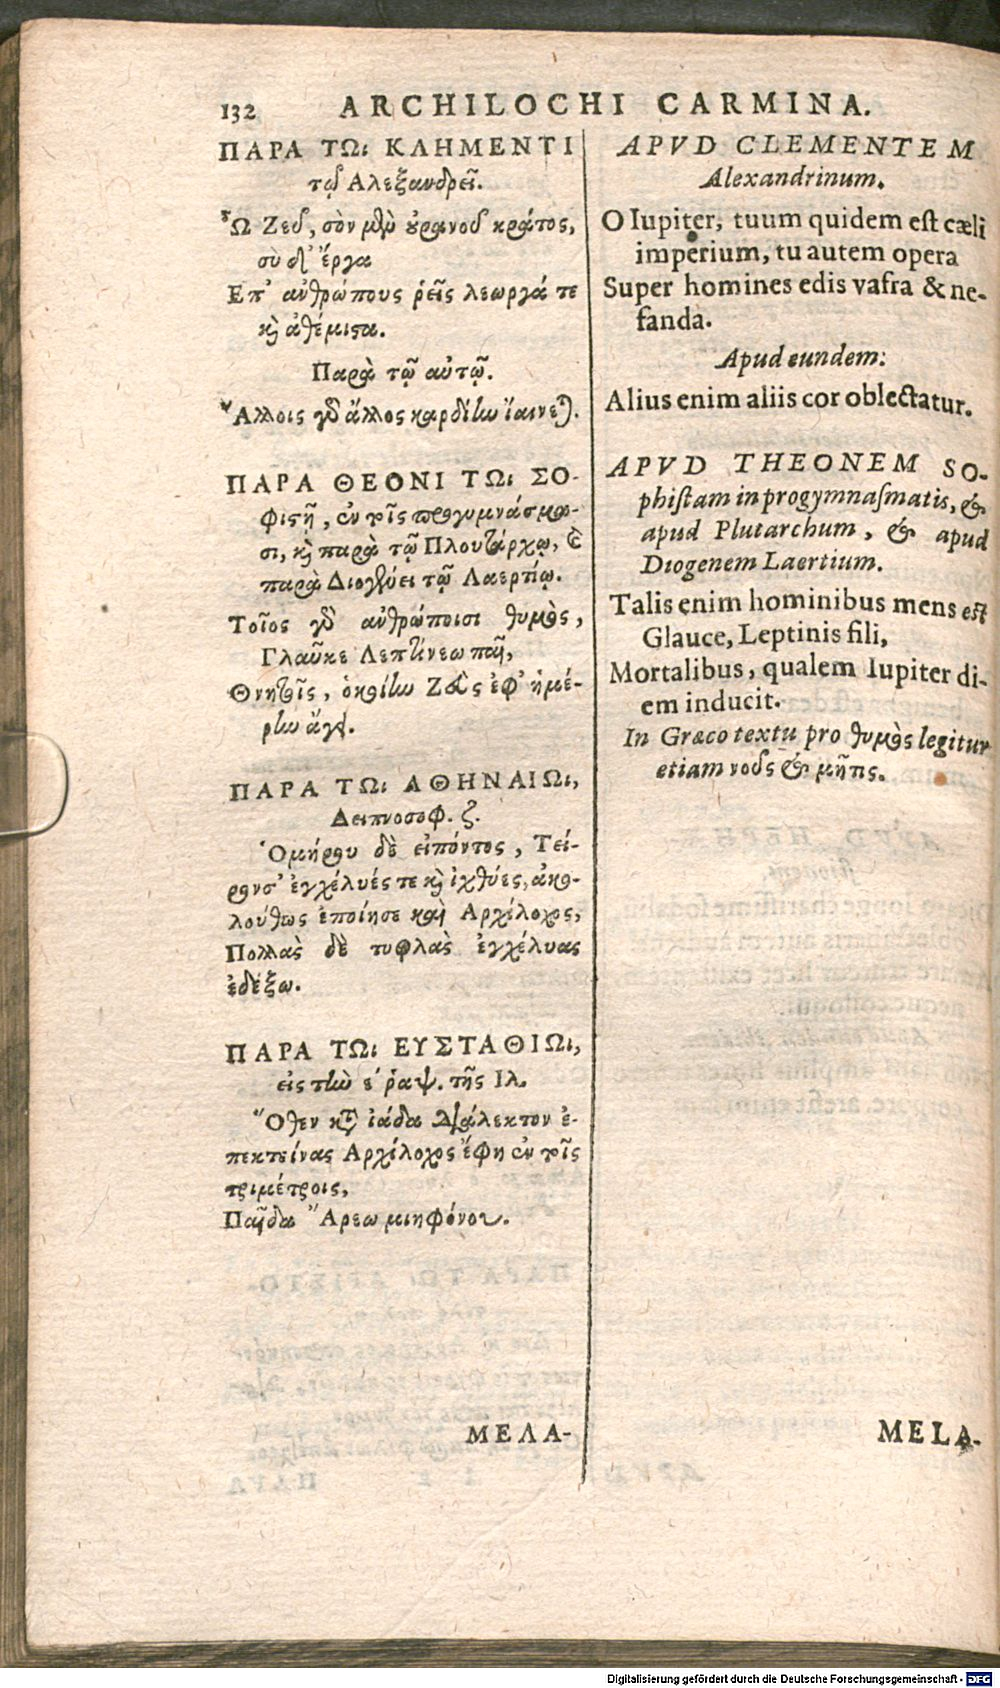 132 ARCHILOCHI CARMINA.
ΠΑΡΑ ΤΩι ΚΛΗΜΕΝΤΙ
τῷ Αλεξανδρεῖ.
Ὦ Ζεῦ, σὸν μὲν οὐρανοῦ κράτος,
σὺ δ᾽ ἔργα
Επ᾽ ἀνθρώπους ῥεῖς λεωργά τε
κὶ ἀθέμιστα.
Παρὰ τῷ αὐτῷ.
Ἄλλοις γὸ ἄλλος καρδίην ἰαίνεται.
ΠΑΡΑ ΘΕΟΝΙ ΤΩι ΣΟ-
φιστῇ, ἐν τοῖς προγυμνάσμα-
σι, κὶ παρὰ τῷ Πλουτάρχῳ, καὶ
παρὰ Διογένει τῷ Λαερτίῳ.
Τοῖος γὸ ἀνθρώποισι θυμὸς,
Γλαῦκε Λεπτίνεω παῖ,
Θνητοῖς, ὁκοίην Ζεὺς ἐφ᾽ ἡμέ-
ρην ἄγει.
ΠΑΡΑ ΤΩι ΑΘΗΝΑΙΩι,
Δειπνοσοφ. ζ.
Ὁμήρου δὲ εἰπόντος, Τεί-
ροντ᾽ ἐγχέλυές τε κὶ ἰχθύες, ἀκο-
λούθως ἐποίησε καὶ Αρχίλοχος,
Πολλὰς δὲ τυφλὰς ἐγχέλυας
ἐδέξω.
ΠΑΡΑ ΤΩι ΕΥΣΤΑΘΙΩι,
εἰς τὴν ε΄ ῥαψ. τῆς Ιλ.
Ὅθεν κατ᾽ ἰάδα διάλεκτον ἐ-
πεκτείνας Αρχίλοχος ἔφη ἐν τοῖς
τριμέτροις,
Παῖδα Ἄρεω μιηφόνου.
ΜΕΛΑ-
APVD CLEMENTEM
Alexandrinum.
O Iupiter, tuum quidem est cæli
imperium, tu autem opera
Super homines edis vafra & ne-
fanda.
Apud eundem:
Alius enim aliis cor oblectatur.
APVD THEONEM SO-
phistam in progymnasmatis, &
apud Plutarchum, & apud
Diogenem Laertium.
Talis enim hominibus mens est
Glauce, Leptinis fili,
Mortalibus, qualem Iupiter di-
em inducit.
In Græco textu pro θυμὸς legitur
etiam νοῦς & μῆτις.
MELA-
Digitalisierung gefördert durch die Deutsche Forschungsgemeinschaft - DFG